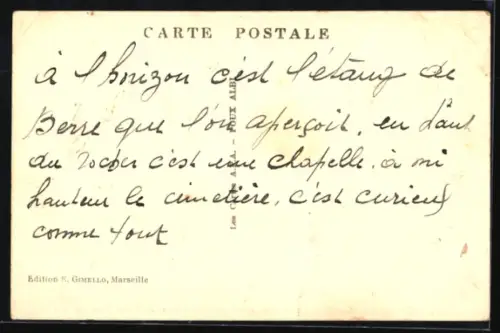 CARTE POSTALE
à l'horizon c'est l'étang de
Berre que l'on aperçoit, en haut
du rocher c'est une chapelle. à mi
hauteur le cimetière, c'est curieux
comme tout
Edition S. GIMELLO, Marseille